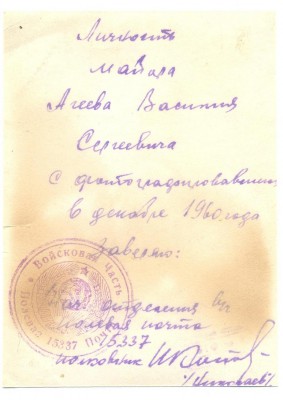 Личность
майора
Агеева Василия
Сергеевича
сфотографировавшегося
в декабре 1960 года
Заверяю:
отделения вч
полевая почта
15337
полковник
/Николаев/
Войсковая часть
15337